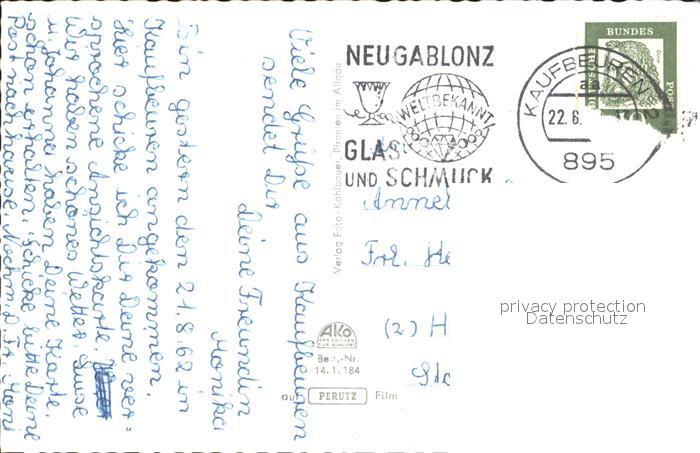 Viele Grüße aus Kaufbeuren
sendet Dir
Deine Freundin
Monika
Bin gestern den 21.8.62 in
Kaufbeuren angekommen.
Hier schicke ich Dir Deine ver=
sprochene Ansichtskarte.
Wir haben schönes Wetter.
u. Johanna haben Deine Karte
schon erhalten. Schicke bitte Deine
NEUGABLONZ
WELTBEKANNT
GLAS
UND SCHMUCK
BUNDES
KAUFBEUREN 2
aa
22.8.
895
Verlag Foto-Kohlbauer, Pfronten im Allgäu
Frl. He
(2) H
AKO
DAS ZEICHEN
FÜR QUALITÄT
Best.-Nr.
14.1.184
auf PERUTZ Film
privacy protection
Datenschutz